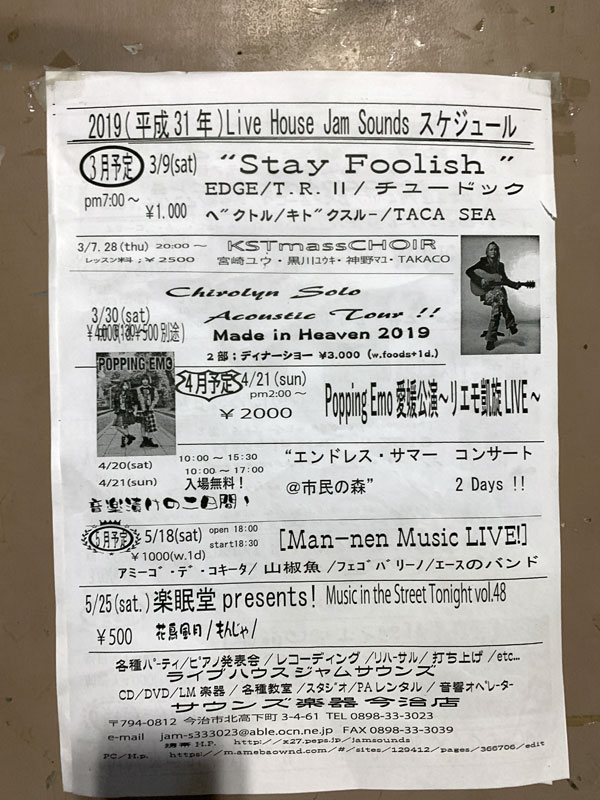 2019(平成31年)Live House Jam Sounds スケジュール
3月予定 3/9(sat) “Stay Foolish ”
EDGE/T.R. II/チュードック
pm7:00～ ¥1.000
ベクトル/キドクスルー/TACA SEA
3/7.28(thu) 20:00～ KSTmassCHOIR
レッスン料;¥2500 宮崎ユウ・黒川ユウキ・神野マユ・TAKACO
Chirolyn Solo
3/30(sat) Acoustic Tour !!
Made in Heaven 2019
2部;ディナーショー ¥3.000(w.foods+1d.)
POPPING EMO
4月予定 4/21(sun)
pm2:00～
¥2000
Popping Emo愛媛公演～リエモ凱旋LIVE～
4/20(sat) 10:00～15:30 “エンドレス・サマー コンサート
10:00～17:00
4/21(sun) 入場無料! @市民の森” 2 Days !!
音楽漬けの二日間!
5月予定 5/18(sat) open 18:00
start18:30
[Man-nen Music LIVE!]
¥1000(w.1d)
アミーゴ・デ・コキータ/山椒魚/フェゴバリーノ/エースのバンド
5/25(sat.)楽眠堂presents! Music in the Street Tonight vol.48
¥500 花鳥風月/もんじゃ/
各種パーティ/ピアノ発表会/レコーディング/リハーサル/打ち上げ/etc...
ライブハウスジャムサウンズ
CD/DVD/LM楽器/各種教室/スタジオ/PAレンタル/音響オペレーター
サウンズ楽器今治店
〒794-0812 今治市北高下町3-4-61 TEL 0898-33-3023
e-mail jam-s333023@able.ocn.ne.jp FAX 0898-33-3039
携帯 H.P. http://x27.peps.jp/jamsounds
PC/H.p. https://m.amebaownd.com/#/sites/129412/pages/366706/edit